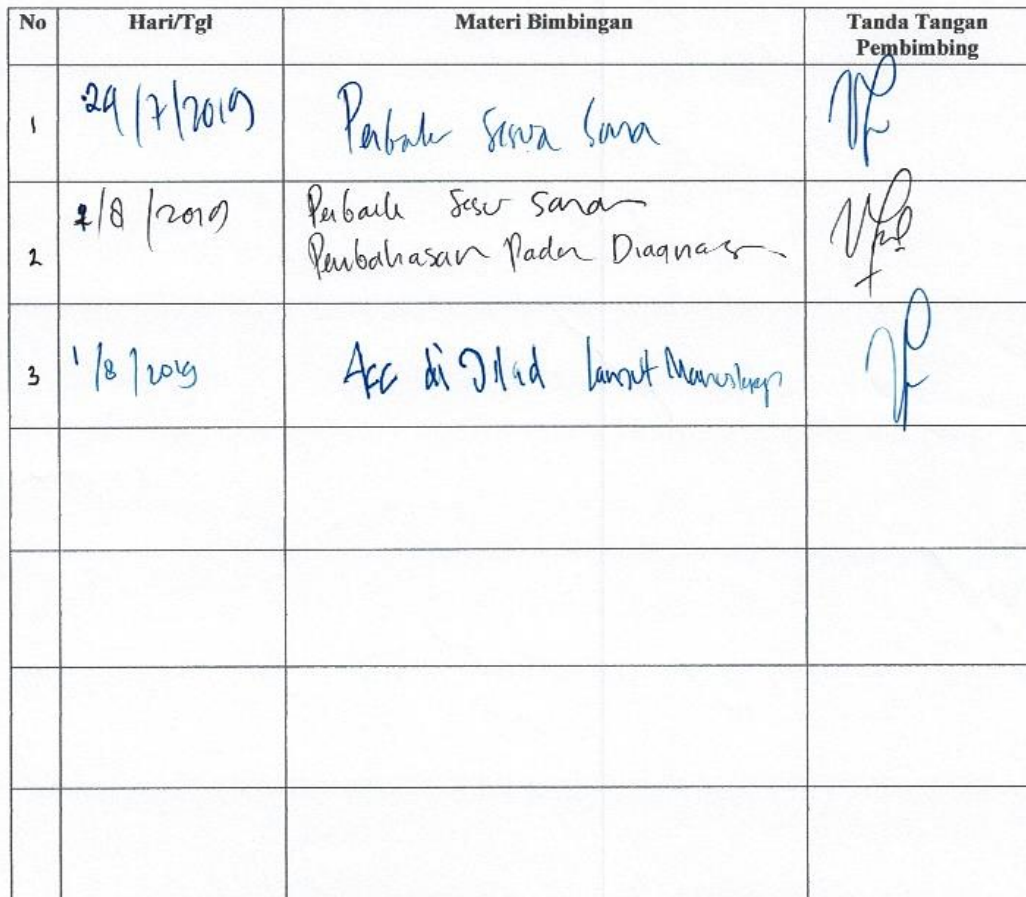 No Hari/Tgl Materi Bimbingan Tanda Tangan
Pembimbing
1 29/7/2019 Perbaiki Sesuai Saran
2 /8/2019 Perbaiki Sesuai Saran
Pembahasan Pada Diagnosa
3 1/8/2019 Acc di Jilid Lanjut Manuskrip